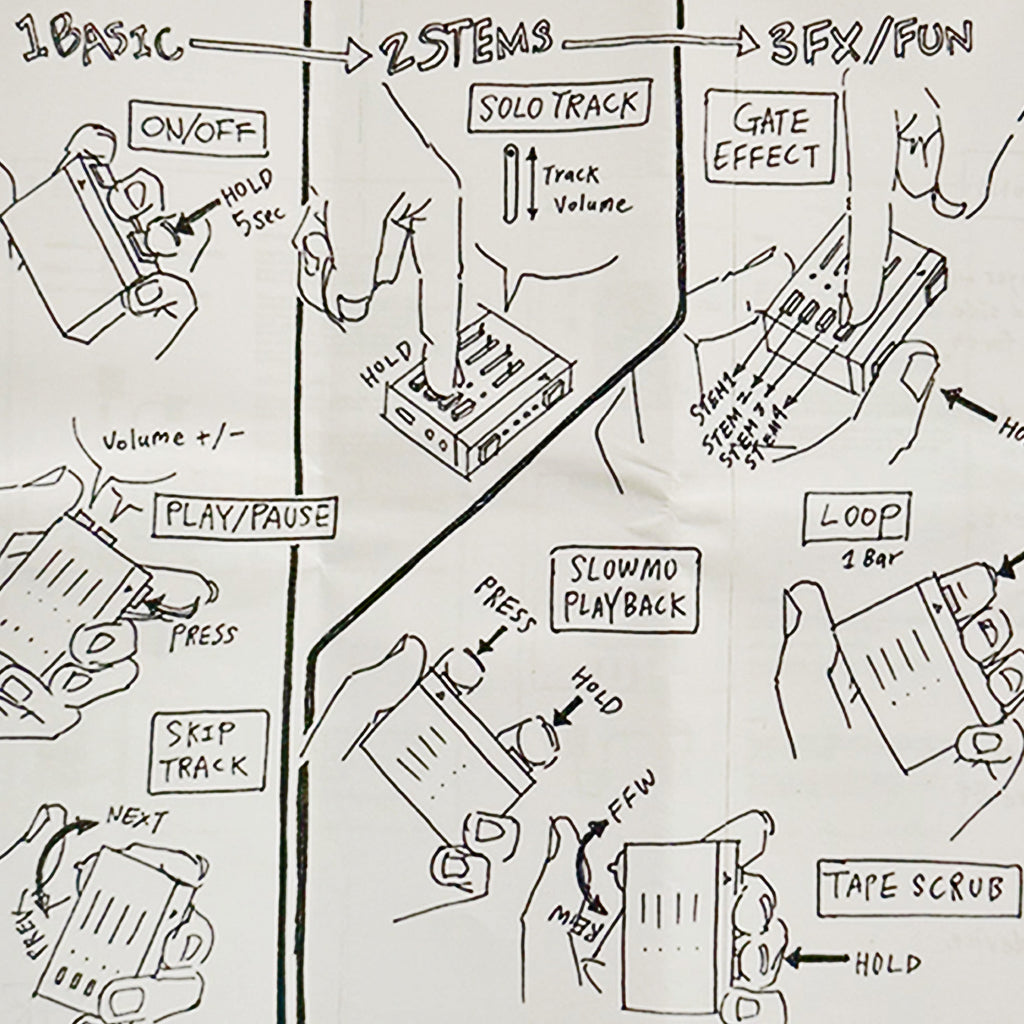 1 BASIC
2 STEMS
3 FX/FUN
ON/OFF
HOLD
5sec
Volume +/-
PLAY/PAUSE
PRESS
SKIP
TRACK
NEXT
PREV
SOLO TRACK
Track
Volume
HOLD
SLOWMO
PLAYBACK
PRESS
HOLD
GATE
EFFECT
STEM 1
STEM 2
STEM 3
STEM 4
HO
LOOP
1 Bar
TAPE SCRUB
FFW
REW
HOLD